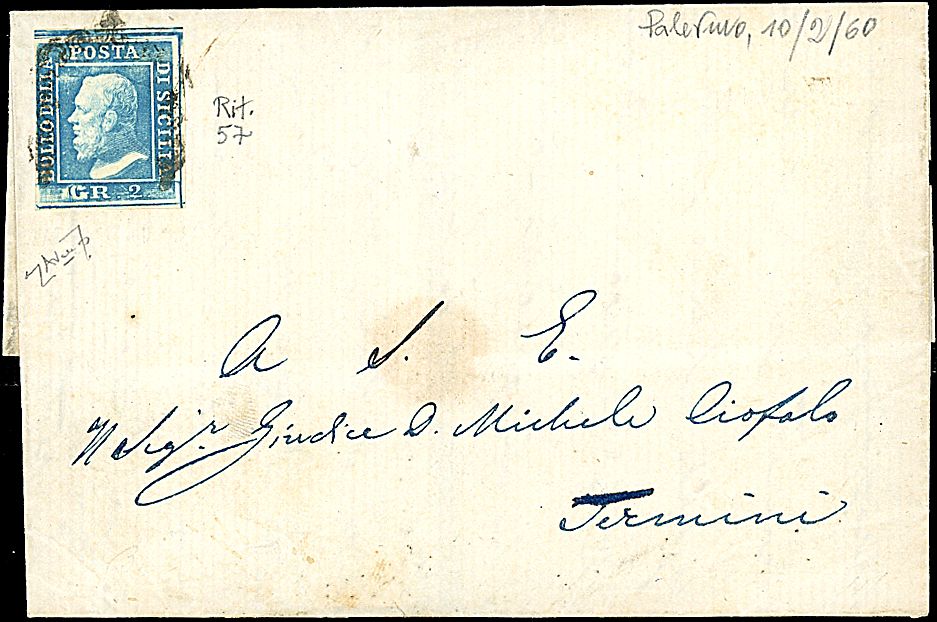 Palermo, 10/2/60
POSTA
BOLLO DELLA
DI SICILIA
GR 2
Rit.
57
A S. E.
Il Sigr. Giudice D. Michele Ciofalo
Termini